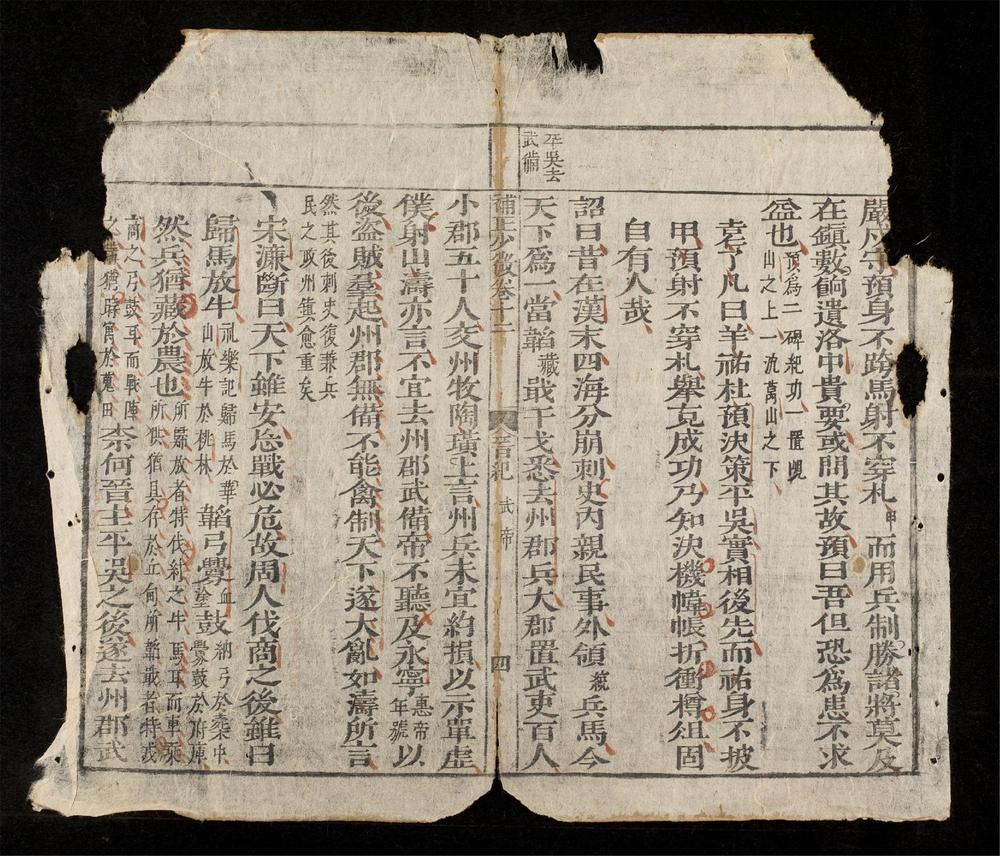 平吳去
武備
嚴戍守預身不跨馬射不穿札甲而用兵制勝諸將莫及
在鎭數餉遺洛中貴要或問其故預曰吾但恐爲患不求
益也預爲二碑紀功一置峴山之上一沉萬山之下
袁了凡曰羊祜杜預決策平吳實相後先而祜身不披
甲預射不穿札舉克成功乃知決機幃帳折衝樽俎固
自有人哉
詔曰昔在漢末四海分崩刺史內親民事外領統兵馬今
天下爲一當韜藏戢干戈悉去州郡兵大郡置武吏百人
補上少微卷十二 晉紀 武帝 四
小郡五十人交州牧陶璜上言州兵未宜約損以示單虛
僕射山濤亦言不宜去州郡武備帝不聽及永寧惠帝年號以
後盜賊羣起州郡無備不能禽制天下遂大亂如濤所言
然其後刺史復兼兵民之政州鎭愈重矣
宋濂斷曰天下雖安忘戰必危故周人伐商之後雖曰
歸馬放牛禮樂記歸馬於華山放牛於桃林韜弓釁血塗鼓納弓於櫜中釁鼓於府庫
然兵猶藏於農也所歸放者特伐紂之牛馬耳而車乘所供猶具存於丘甸所韜戢者特戎
商之弓鼓耳而戰陣之講猶時寓於蒐田柰何晉主平吳之後遂去州郡武